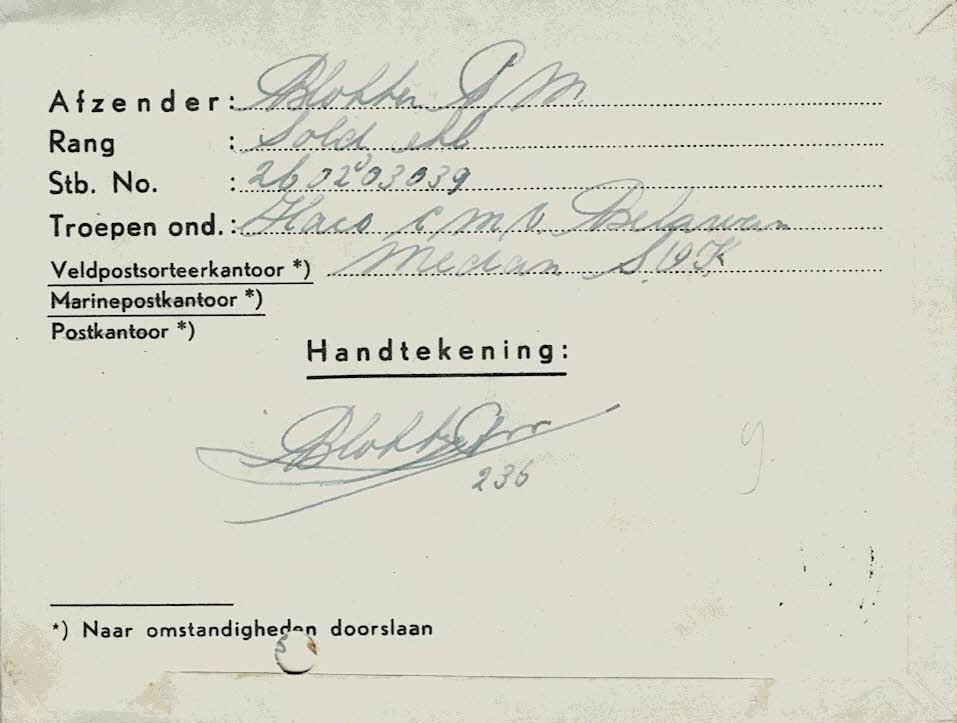 Afzender: Blokker P M.
Rang : Sold ekl
Stb. No. : 260203039
Troepen ond.: Haco C M V. Belawan
Veldpostsorteerkantoor *) Medan S.O.K
Marinepostkantoor *)
Postkantoor *)
Handtekening:
Blokker
236
9
*) Naar omstandigheden doorslaan